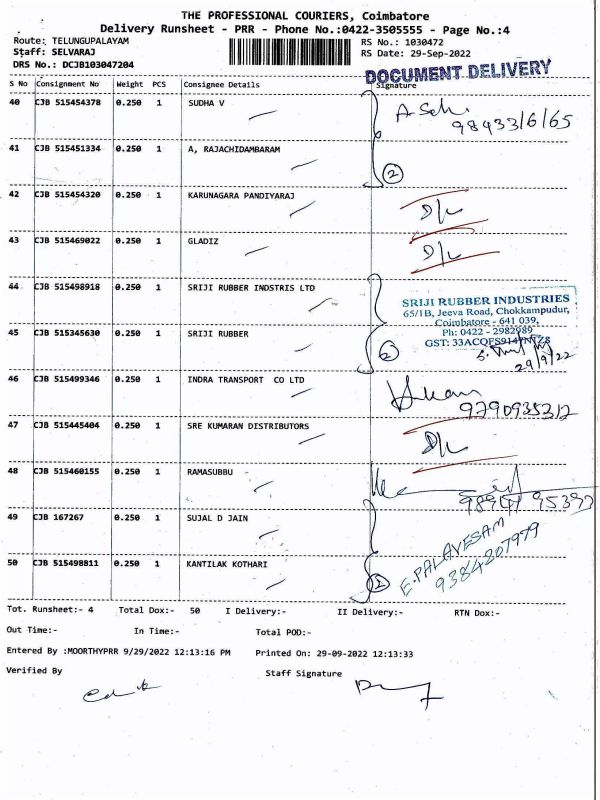 THE PROFESSIONAL COURIERS, Coimbatore
Delivery Runsheet - PRR - Phone No.:0422-3505555 - Page No.:4
Route: TELUNGUPALAYAM RS No.: 1030472
Staff: SELVARAJ RS Date: 29-Sep-2022
DRS No.: DCJB103047204
DOCUMENT DELIVERY
S No Consignment No Weight PCS Consignee Details Signature
40 CJB 515454378 0.250 1 SUDHA V
98433/6/65
41 CJB 515451334 0.250 1 A, RAJACHIDAMBARAM
2
42 CJB 515454320 0.250 1 KARUNAGARA PANDIYARAJ D/L
43 CJB 515469022 0.250 1 GLADIZ D/L
44 CJB 515498918 0.250 1 SRIJI RUBBER INDSTRIS LTD
SRIJI RUBBER INDUSTRIES
65/1B, Jeeva Road, Chokkampudur,
Coimbatore - 641 039,
Ph: 0422 - 2982989
45 CJB 515345630 0.250 1 SRIJI RUBBER 2
29/9/22
46 CJB 515499346 0.250 1 INDRA TRANSPORT CO LTD
9790935212
47 CJB 515445404 0.250 1 SRE KUMARAN DISTRIBUTORS D/L
48 CJB 515460155 0.250 1 RAMASUBBU
49 CJB 167267 0.250 1 SUJAL D JAIN
E.PALAVESAM
9384207979
50 CJB 515498811 0.250 1 KANTILAK KOTHARI 2
Tot. Runsheet:- 4 Total Dox:- 50 I Delivery:- II Delivery:- RTN Dox:-
Out Time:- In Time:- Total POD:-
Entered By :MOORTHYPRR 9/29/2022 12:13:16 PM Printed On: 29-09-2022 12:13:33
Verified By Staff Signature